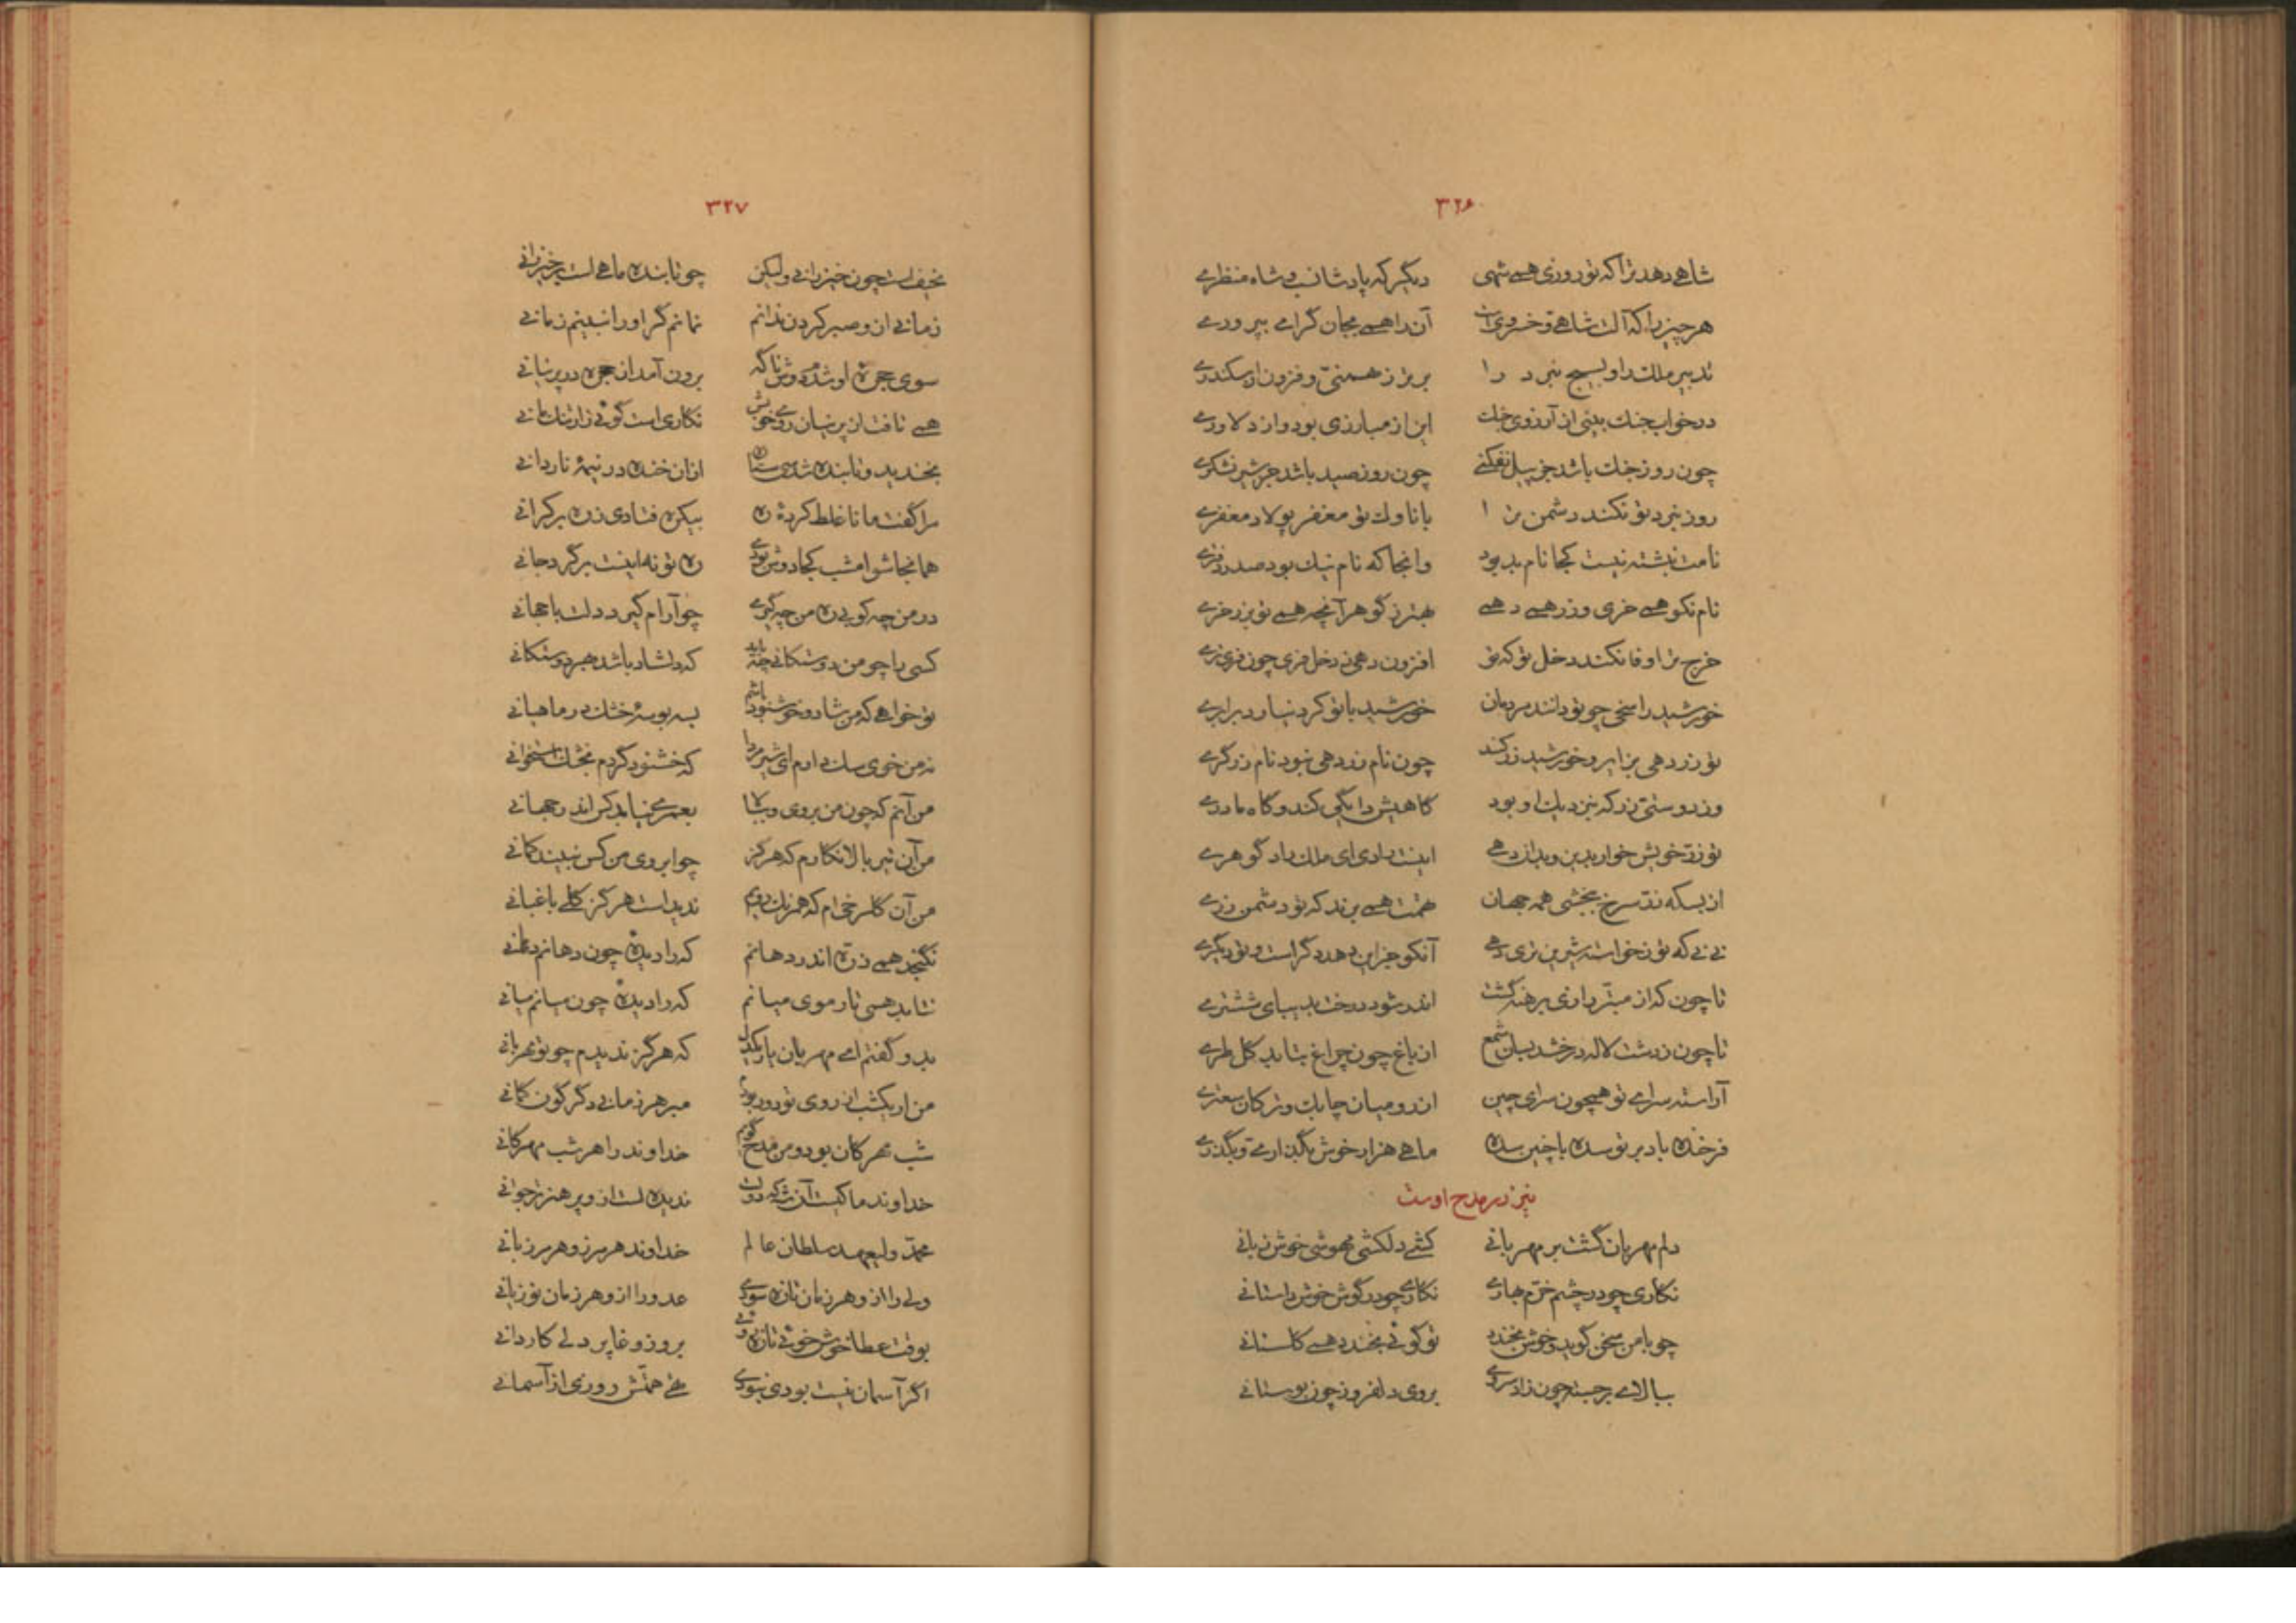 ۳۲۶
شاهی دهد ترا که تو روزی همی شهی دیگر که پادشا نسب و شاه منظری
هر چیز را که آلت شاهی و خسروی است آن را همی بجان گرامی بپروری
تدبیر ملک را و بسیج نبرد را برتر ز بهمنی و فزون از سکندری
در خواب جنک بینی از آرزوی جنک این از مبارزی بود و از دلاوری
چون روز جنک باشد جز پیل نفکنی چون روز صید باشد جز شیر نشکری
روز نبرد تو نکند دشمن ترا با ناوک تو مغفر پولاد مغفری
نامت نبشته نیست کجا نام بد بود وانجا که نام نیک بود صدر دفتری
نام نکو همی خری و زر همی دهی بهتر ز گوهر آنچه همی تو بزر خری
خرج ترا وفا نکند دخل تو که تو افزون دهی ز دخل فری چون تو فری
خورشید را سخی چو تو دانند مردمان خورشید با تو کرد نیارد برابری
تو زر دهی برایر و خورشید زر کند چون نام زر دهی نبود نام زرگری
وز دوستی زر که بنزدیک او بود گاهیش دایگی کند و گاه مادری
تو زر خویش خوار بدین و بدان دهی اینت رادی ای ملک راد گوهری
از بسکه زر سرخ ببخشی همه جهان همت همی برند که تو دشمن زری
نی نی که تو ز خواسته شیرین تری دهی آنکو جز این دهد دگر است و تو دیگری
تا چون گذار مه آزاری برهنه گشت اندر شود درخت بدیبای ششتری
تا چون ز دشت لاله درخشد بسان شمع از باغ چون چراغ بتابد گل طری
آراسته سرای تو همچون سرای چین از رومیان چابک و ترکان سعتری
فرخنده باد بر تو سده با چنین سده ماهی هزار خوش بگذاری و بگذری
نیز در مدح اوست
دلم مهربان گشت بر مهربانی کشی دلکشی مهوشی خوش زبانی
نگاری چو در چشم خرم بهاری نگاری چو در گوش خوش داستانی
چو با من سخن گوید و خوش بخندد تو گوئی بخندد همی گلستانی
ببالای برجسته چون زاد سروی بروی دلفروز چون بوستانی
۳۲۷
نحیف است چون خیزرانی ولیکن چو تابنده ماهی است بر خیزرانی
زمانی از و صبر کردن ندانم نمانم گر او را نبینم زمانی
سوی حجرهٔ او شدم دوش ناگه برون آمد از حجره در پرنیانی
همی تافت از پرنیان روی خوبش نگاری است گوئی ز ارتنک مانی
بخندید و تابنده شد سی ستاره از آن خنده در نیمهٔ ناردانی
مرا گفت مانا غلط کردهٔ ره بیک ره فتادی ز ره بر کرانی
همانجا شو امشب کجا دوش بودی ره تو نه اینست برگرد جانی
در من چه کوبی ره من چه گیری چو آرام گیرد دلت با جهانی
کسی را چو من دوستکانی چه باید که دلشاد باشد بهر دوستکانی
تو خواهی که من شاد و خوشنود باشم بسه بوسهٔ خشک در ماهیانی
نه من خوی سک دارم ای شیر مردا که خشنود گردم بخشک استخوانی
من آنم که چون من بروی و ببالا بعمری نیاید کس اندر جهانی
من آن تیر بالا نگارم که هرگز چو ابروی من کس نبیند کمانی
من آن گلرخی ام که همرنک رویم ندیدست هرگز گلی باغبانی
نگنجد همی ذره اندر دهانم که را دیدهٔ چون دهانم دهانی
نتابد همی تار موی میانم که را دیدهٔ چون میانم میانی
بدو گفتم ای مهربان یار یکدل که هرگز ندیدم چو تو مهربانی
من ار یکشب از روی تو دور بودم مبر هر زمانی دگر گون گمانی
شب مهرگان بود و من مدح گویم خداوند را هر شب مهرگانی
خداوند ما کیست آن شه که دولت ندیده است از و پر هنر تر جوانی
محمد ولیعهد سلطان عالم خداوند هر مرز و هر مرزبانی
ولی را از و هر زمان تازه سودی عدو را از و هر زمان نو زیانی
بوقت عطا خوش خوئی تازه روئی بروز وغا پر دلی کاردانی
اگر آسمان نیست بودی نبودی همتش روزی از آسمانی